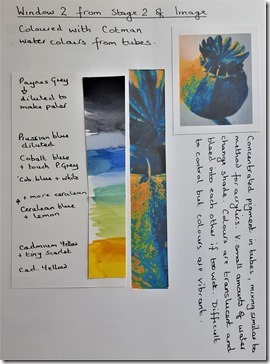 Window 2 from Stage 2 of Image
Coloured with Cotman
water colours from tubes.
Paynes Grey
diluted to
make paler
Prussian blue
diluted
Cobalt blue
+ touch P.Grey
Cob. blue + white
+ more cerulean
Cerulean blue
+ lemon
Cadmium Yellow
+ tiny Scarlet
Cad. Yellow
Concentrated pigment in tubes, mixing similar to
method for acrylics. V small amounts of water
change shade. Colours more translucent and
bleed into each other if too wet. Difficult
to control but colours are vibrant.